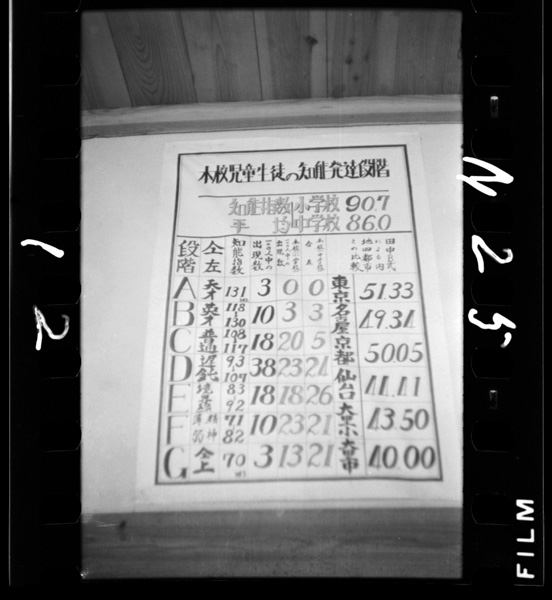 本校児童生徒の知能発達段階
知能指数 小学校 90.7
平均 中学校 86.0
段階 仝左 知能指数 出現数 出現数 出現数 田中B式
A 天才 131 3 0 0 東京 51.33
B 英才 118 130 10 3 3 名古屋 49.34
C 普通 108 117 18 20 5 京都 50.05
D 遅鈍 93 107 38 23 21 仙台 44.41
E 境界線 83 92 18 18 26 大里小 43.50
F 薄弱 精神 71 82 10 23 21
G 仝上 70 3 13 21 40.00
N25
12
FILM